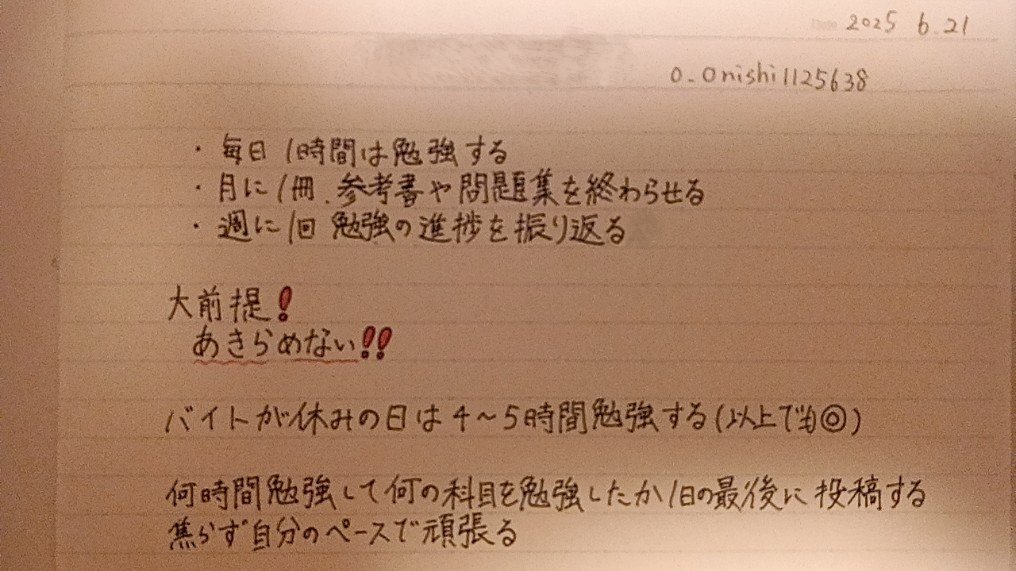 Date 2025 6.21
o_onishi1125638
・毎日1時間は勉強する
・月に1冊、参考書や問題集を終わらせる
・週に1回 勉強の進捗を振り返る
大前提!
あきらめない!!
バイトが休みの日は4〜5時間勉強する(以上でも◎)
何時間勉強して何の科目を勉強したか1日の最後に投稿する
焦らず自分のペースで頑張る